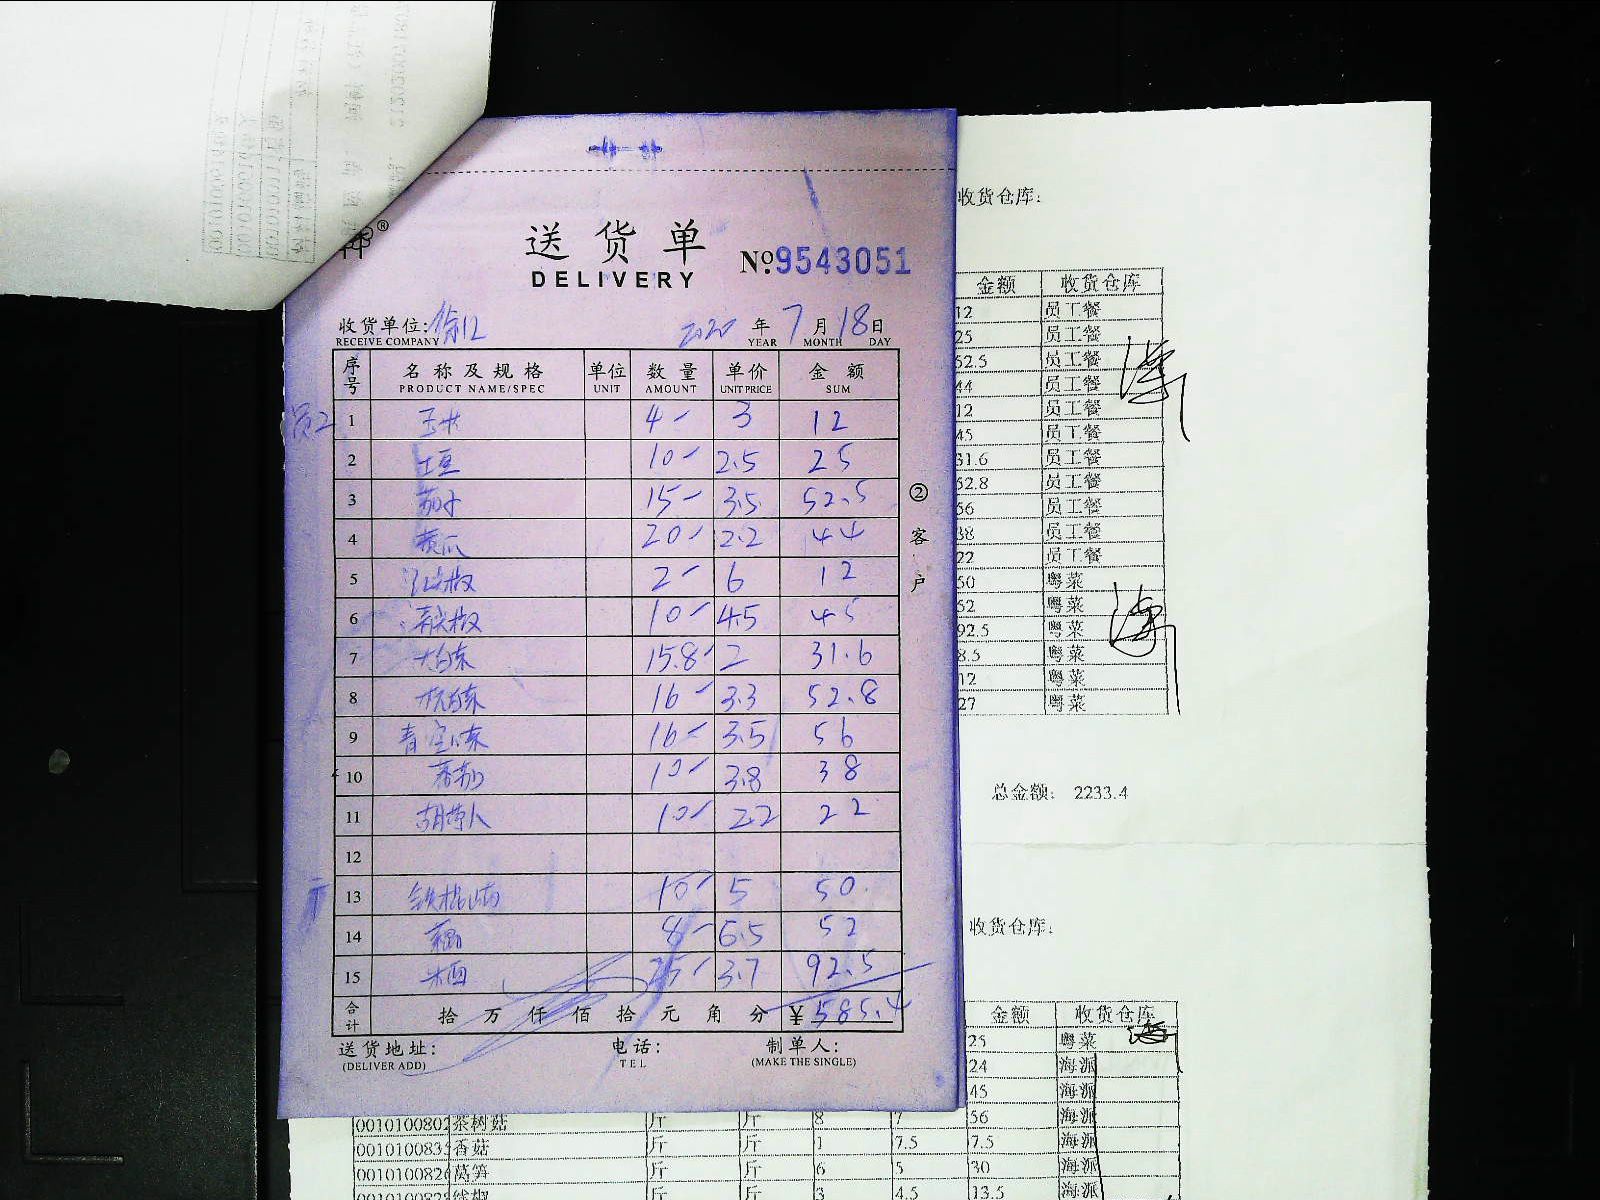 送货单
DELIVERY
№:9543051
收货单位:
RECEIVE COMPANY
2020 年 7 月 18 日
YEAR MONTH DAY
序号 名称及规格 单位 数量 单价 金额
PRODUCT NAME/SPEC UNIT AMOUNT UNIT PRICE SUM
1 玉米 4 3 12
2 土豆 10 2.5 25
3 茄子 15 3.5 52.5
4 黄瓜 20 2.2 44
5 红椒 2 6 12
6 青椒 10 4.5 45
7 大白菜 15.8 2 31.6
8 杭白菜 16 3.3 52.8
9 青空心菜 16 3.5 56
10 10 3.8 38
11 胡萝卜 10 2.2 22
12
13 铁棍山药 10 5 50
14 藕 8 6.5 52
15 25 3.7 92.5
合计 拾 万 仟 佰 拾 元 角 分 ¥ 585.4
送货地址: 电话: 制单人:
(DELIVER ADD) TEL (MAKE THE SINGLE)
②客户
收货仓库:
金额 收货仓库
12 员工餐
25 员工餐
52.5 员工餐
44 员工餐
12 员工餐
45 员工餐
31.6 员工餐
52.8 员工餐
56 员工餐
38 员工餐
22 员工餐
50 粤菜
52 粤菜
92.5 粤菜
8.5 粤菜
12 粤菜
27 粤菜
总金额: 2233.4
收货仓库:
金额 收货仓库
25 粤菜
24 海派
45 海派
0010100802 茶树菇 斤 斤 8 7 56 海派
0010100835 香菇 斤 斤 1 7.5 7.5 海派
0010100826 莴笋 斤 斤 6 5 30 海派
斤 斤 3 4.5 13.5 海派